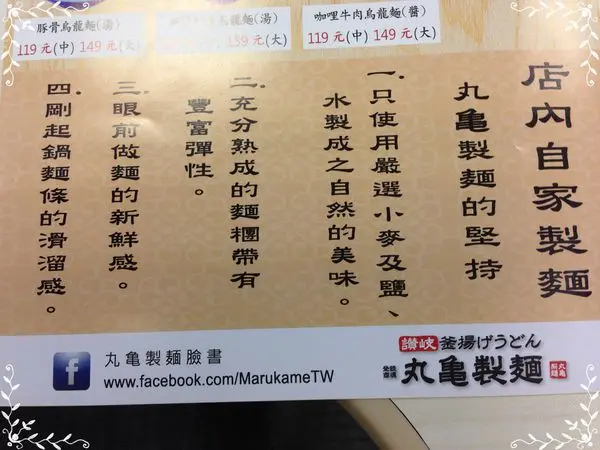 豚骨烏龍麵(湯)
119元(中) 149元(大)
烏龍麵(湯)
159元(大)
咖哩牛肉烏龍麵(醬)
119元(中) 149元(大)
店內自家製麵
丸亀製麵的堅持
一.只使用嚴選小麥及鹽、
水製成之自然的美味。
二.充分熟成的麵糰帶有
豐富彈性。
三.眼前做麵的新鮮感。
四.剛起鍋麵條的滑溜感。
丸亀製麵臉書
www.facebook.com/MarukameTW
讃岐 釜揚げうどん
丸亀製麺